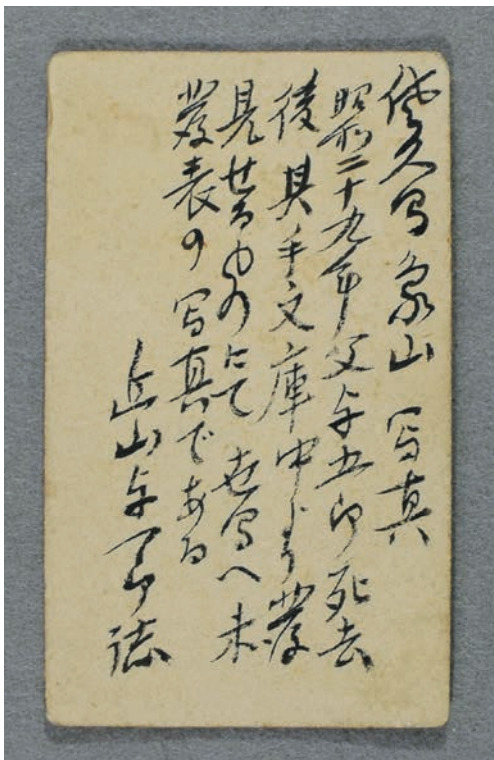 佐久間象山 写真
昭和二十九年父与五郎死去
後其手文庫中より發
見せるものにて 世間へ未
發表の写真である
近山与 郎誌